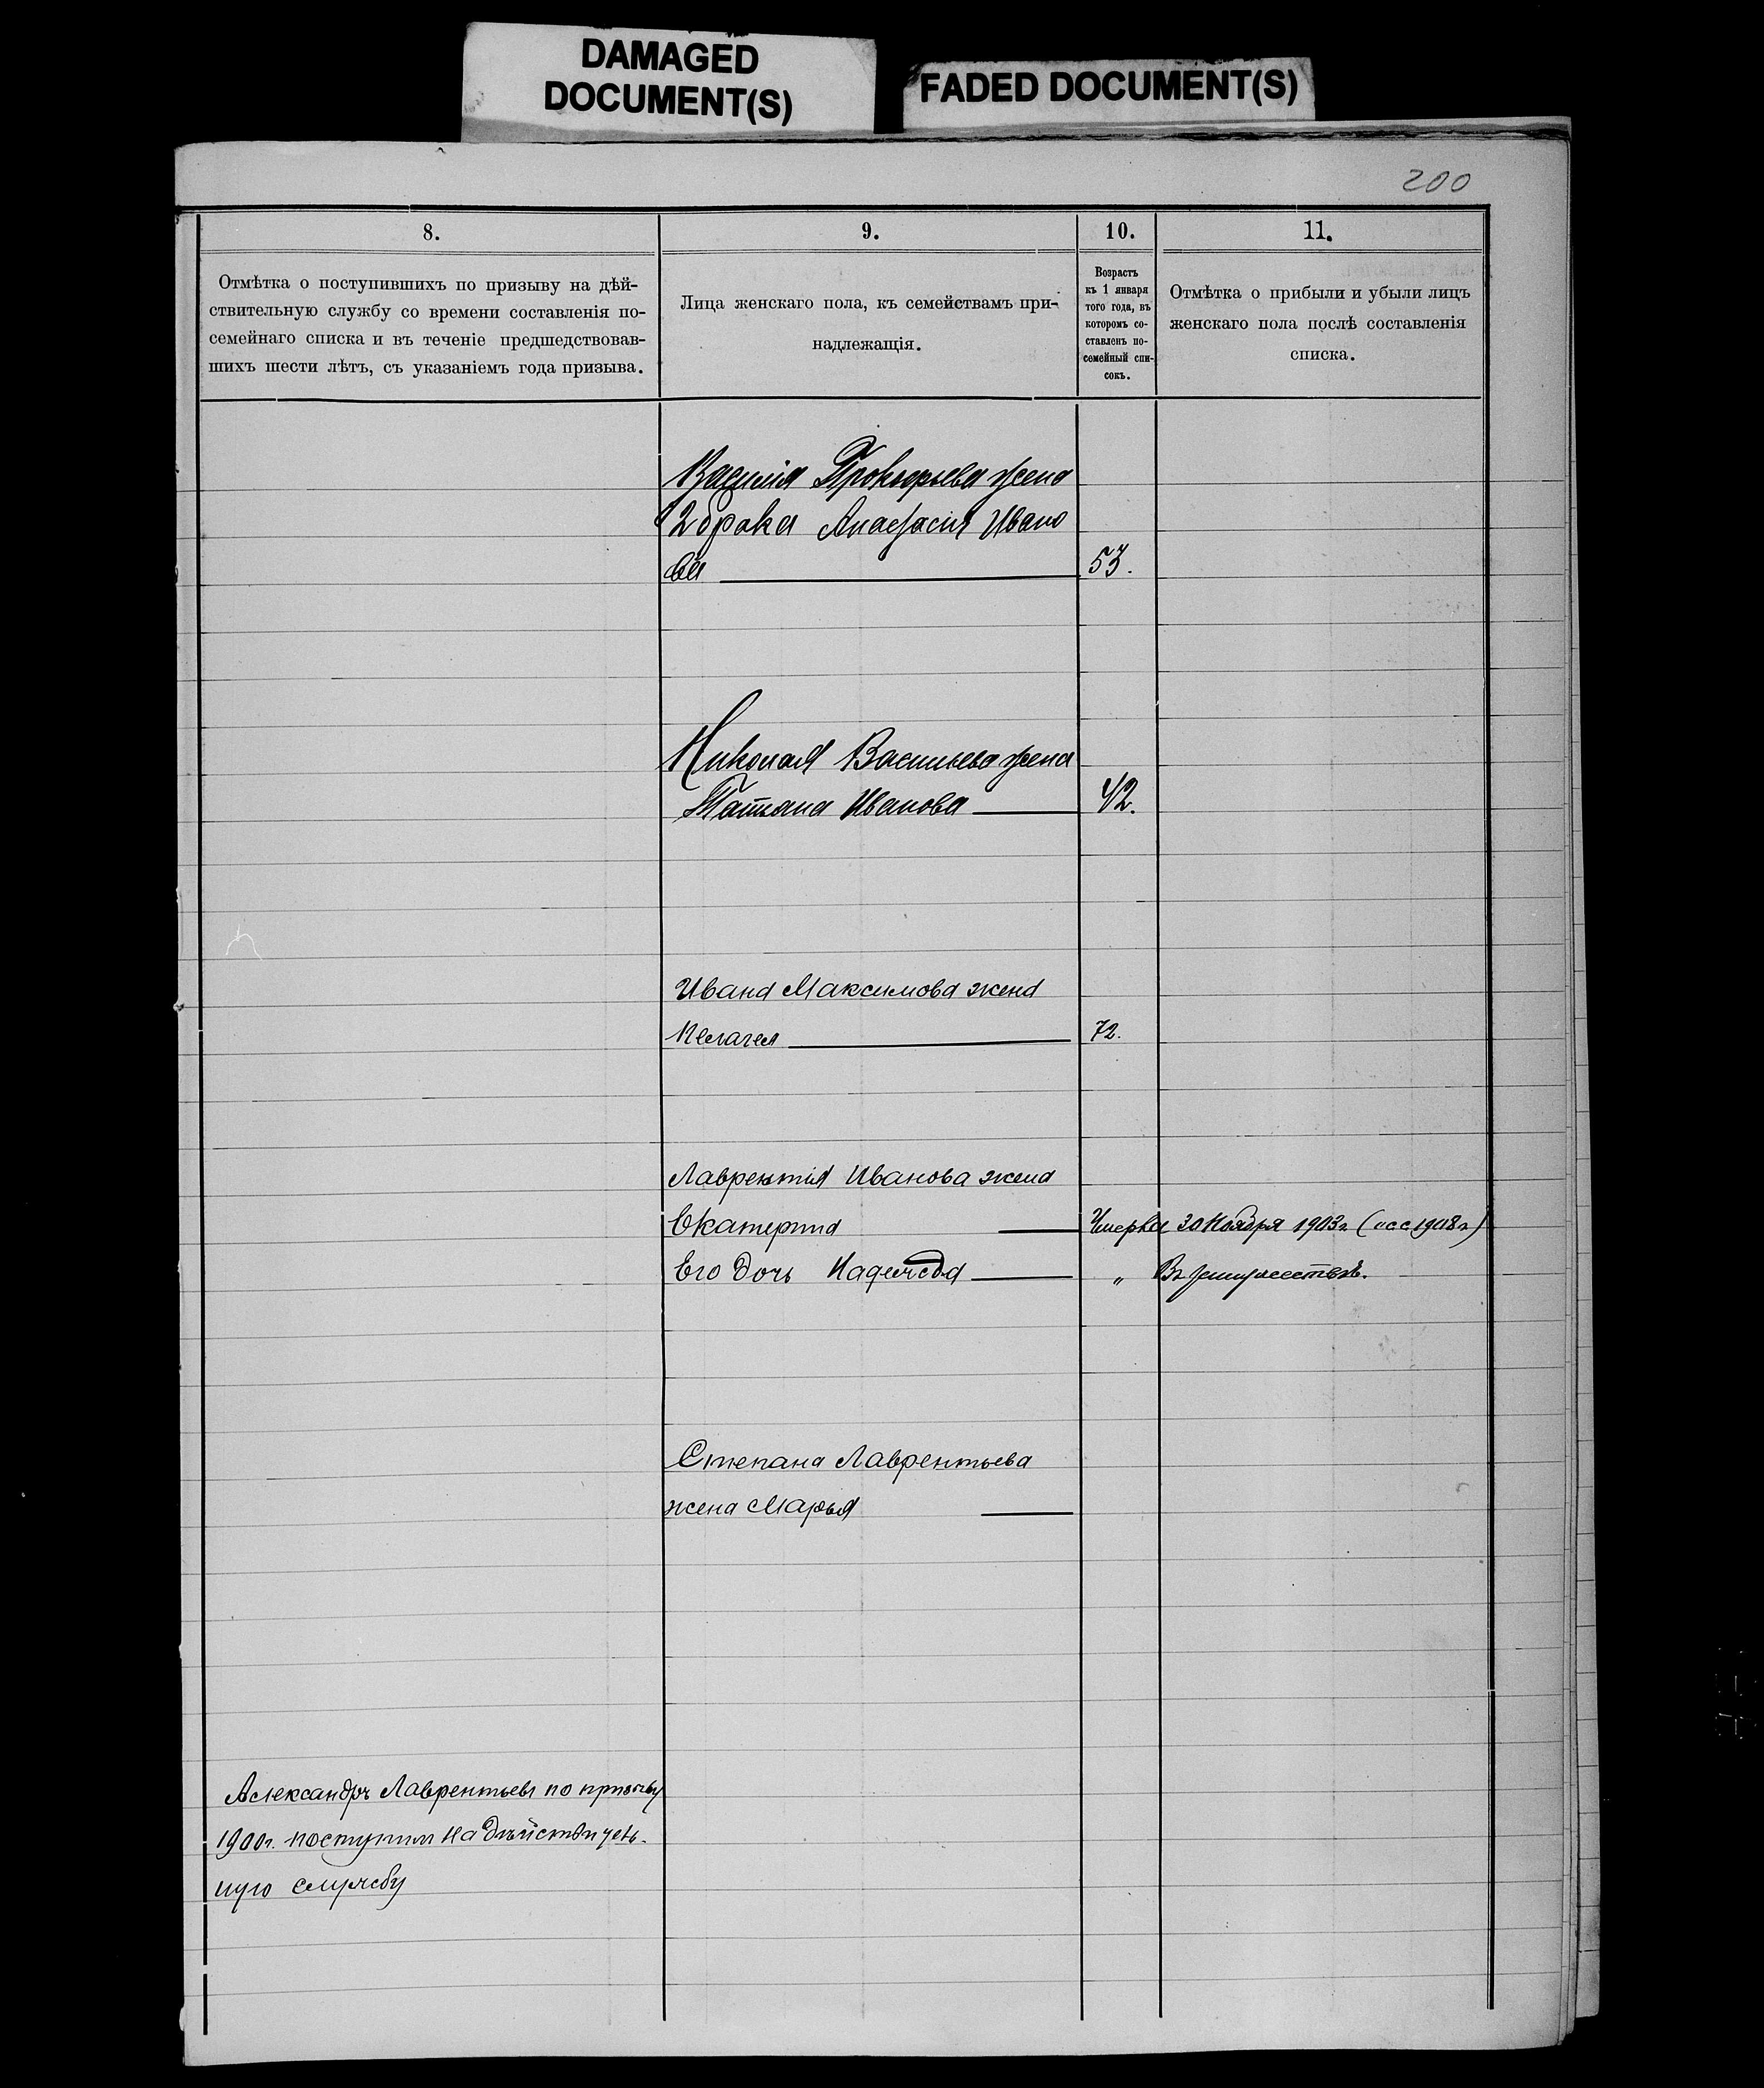 DAMAGED
DOCUMENT(S)
FADED DOCUMENT(S)
200
8.
Отмѣтка о поступившихъ по призыву на дѣй-
ствительную службу со времени составленія по-
семейнаго списка и въ теченіе предшедствовав-
шихъ шести лѣтъ, съ указаніемъ года призыва.
9.
Лица женскаго пола, къ семействамъ при-
надлежащія.
10.
Возрастъ
къ 1 января
того года, въ
которомъ со-
ставленъ по-
семейный спи-
сокъ.
11.
Отмѣтка о прибыли и убыли лицъ
женскаго пола послѣ составленія
списка.
Василія Прокофьева жена
2 брака Анастасія Ивано
ва 53.
Николая Васильева жена
Татьяна Иванова 42.
Ивана Максимова жена
Пелагея 72.
Лаврентія Иванова жена
Екатерина Умерла 30 Ноября 1903г (исс 1908г)
Его дочь Надежда „ Въ замужествѣ.
Степана Лаврентьева
жена Марья
Александръ Лаврентьевъ по призыву
1900г. поступилъ на дѣйствитель-
ную службу